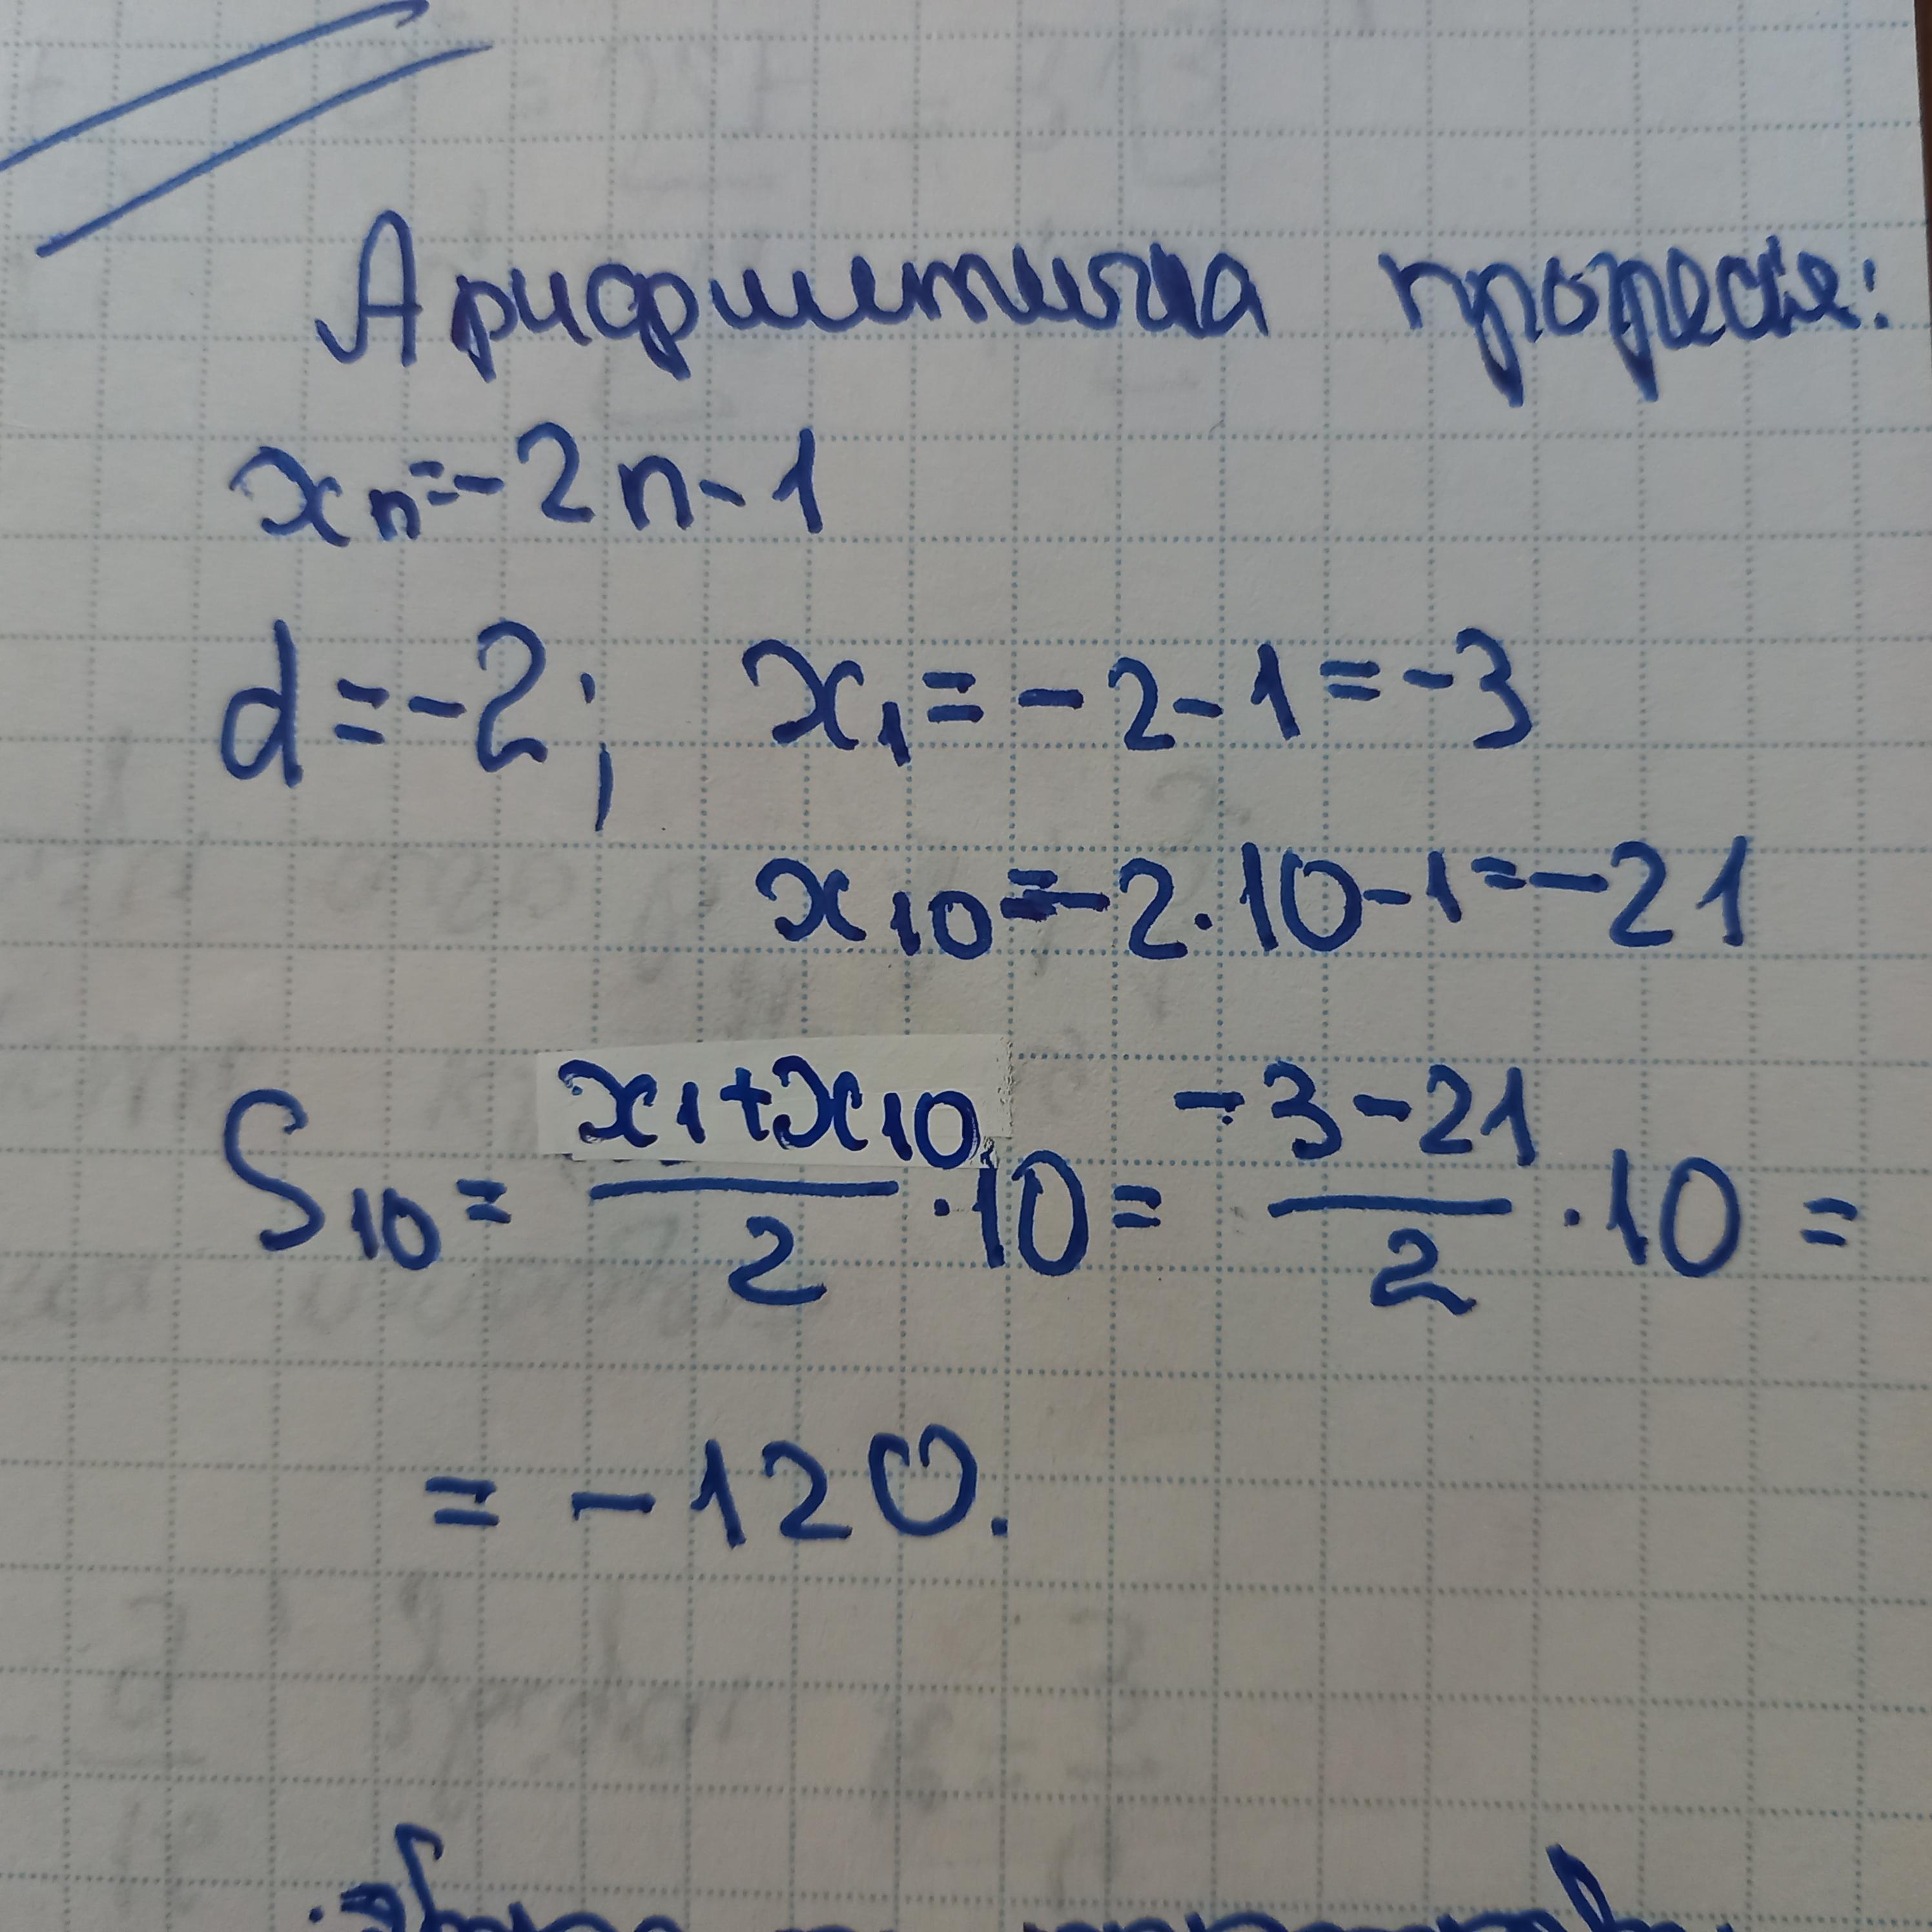 Арифметична прогресія:
xₙ=-2n-1
d=-2; x₁=-2-1=-3
x₁₀=-2·10-1=-21
S₁₀= (x₁+x₁₀)/2 ·10= (-3-21)/2 ·10=
= -120.